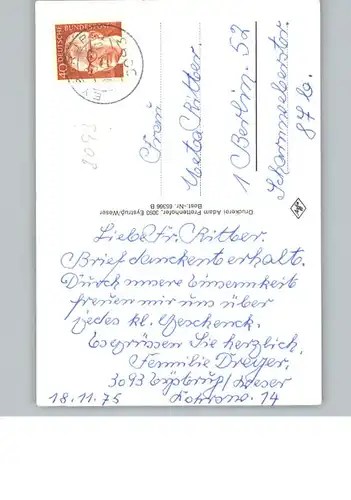 40 DEUTSCHE BUNDESPOST
Frau
Meta Ritter.
1 Berlin. 52
Scharnweberstr.
87 b.
3093
Druckerei Adam Prettenhofer, 3093 Eystrup/Weser
Best.-Nr. 65366 B
Liebe Fr. Ritter.
Brief danckent erhalte.
Durch unsere Einsamkeit
freuen mir uns über
jedes kl. Geschenck.
Es grüssen Sie herzlich.
Femilie Dreyer.
3093 Eystrup/Weser
18.11.75 14